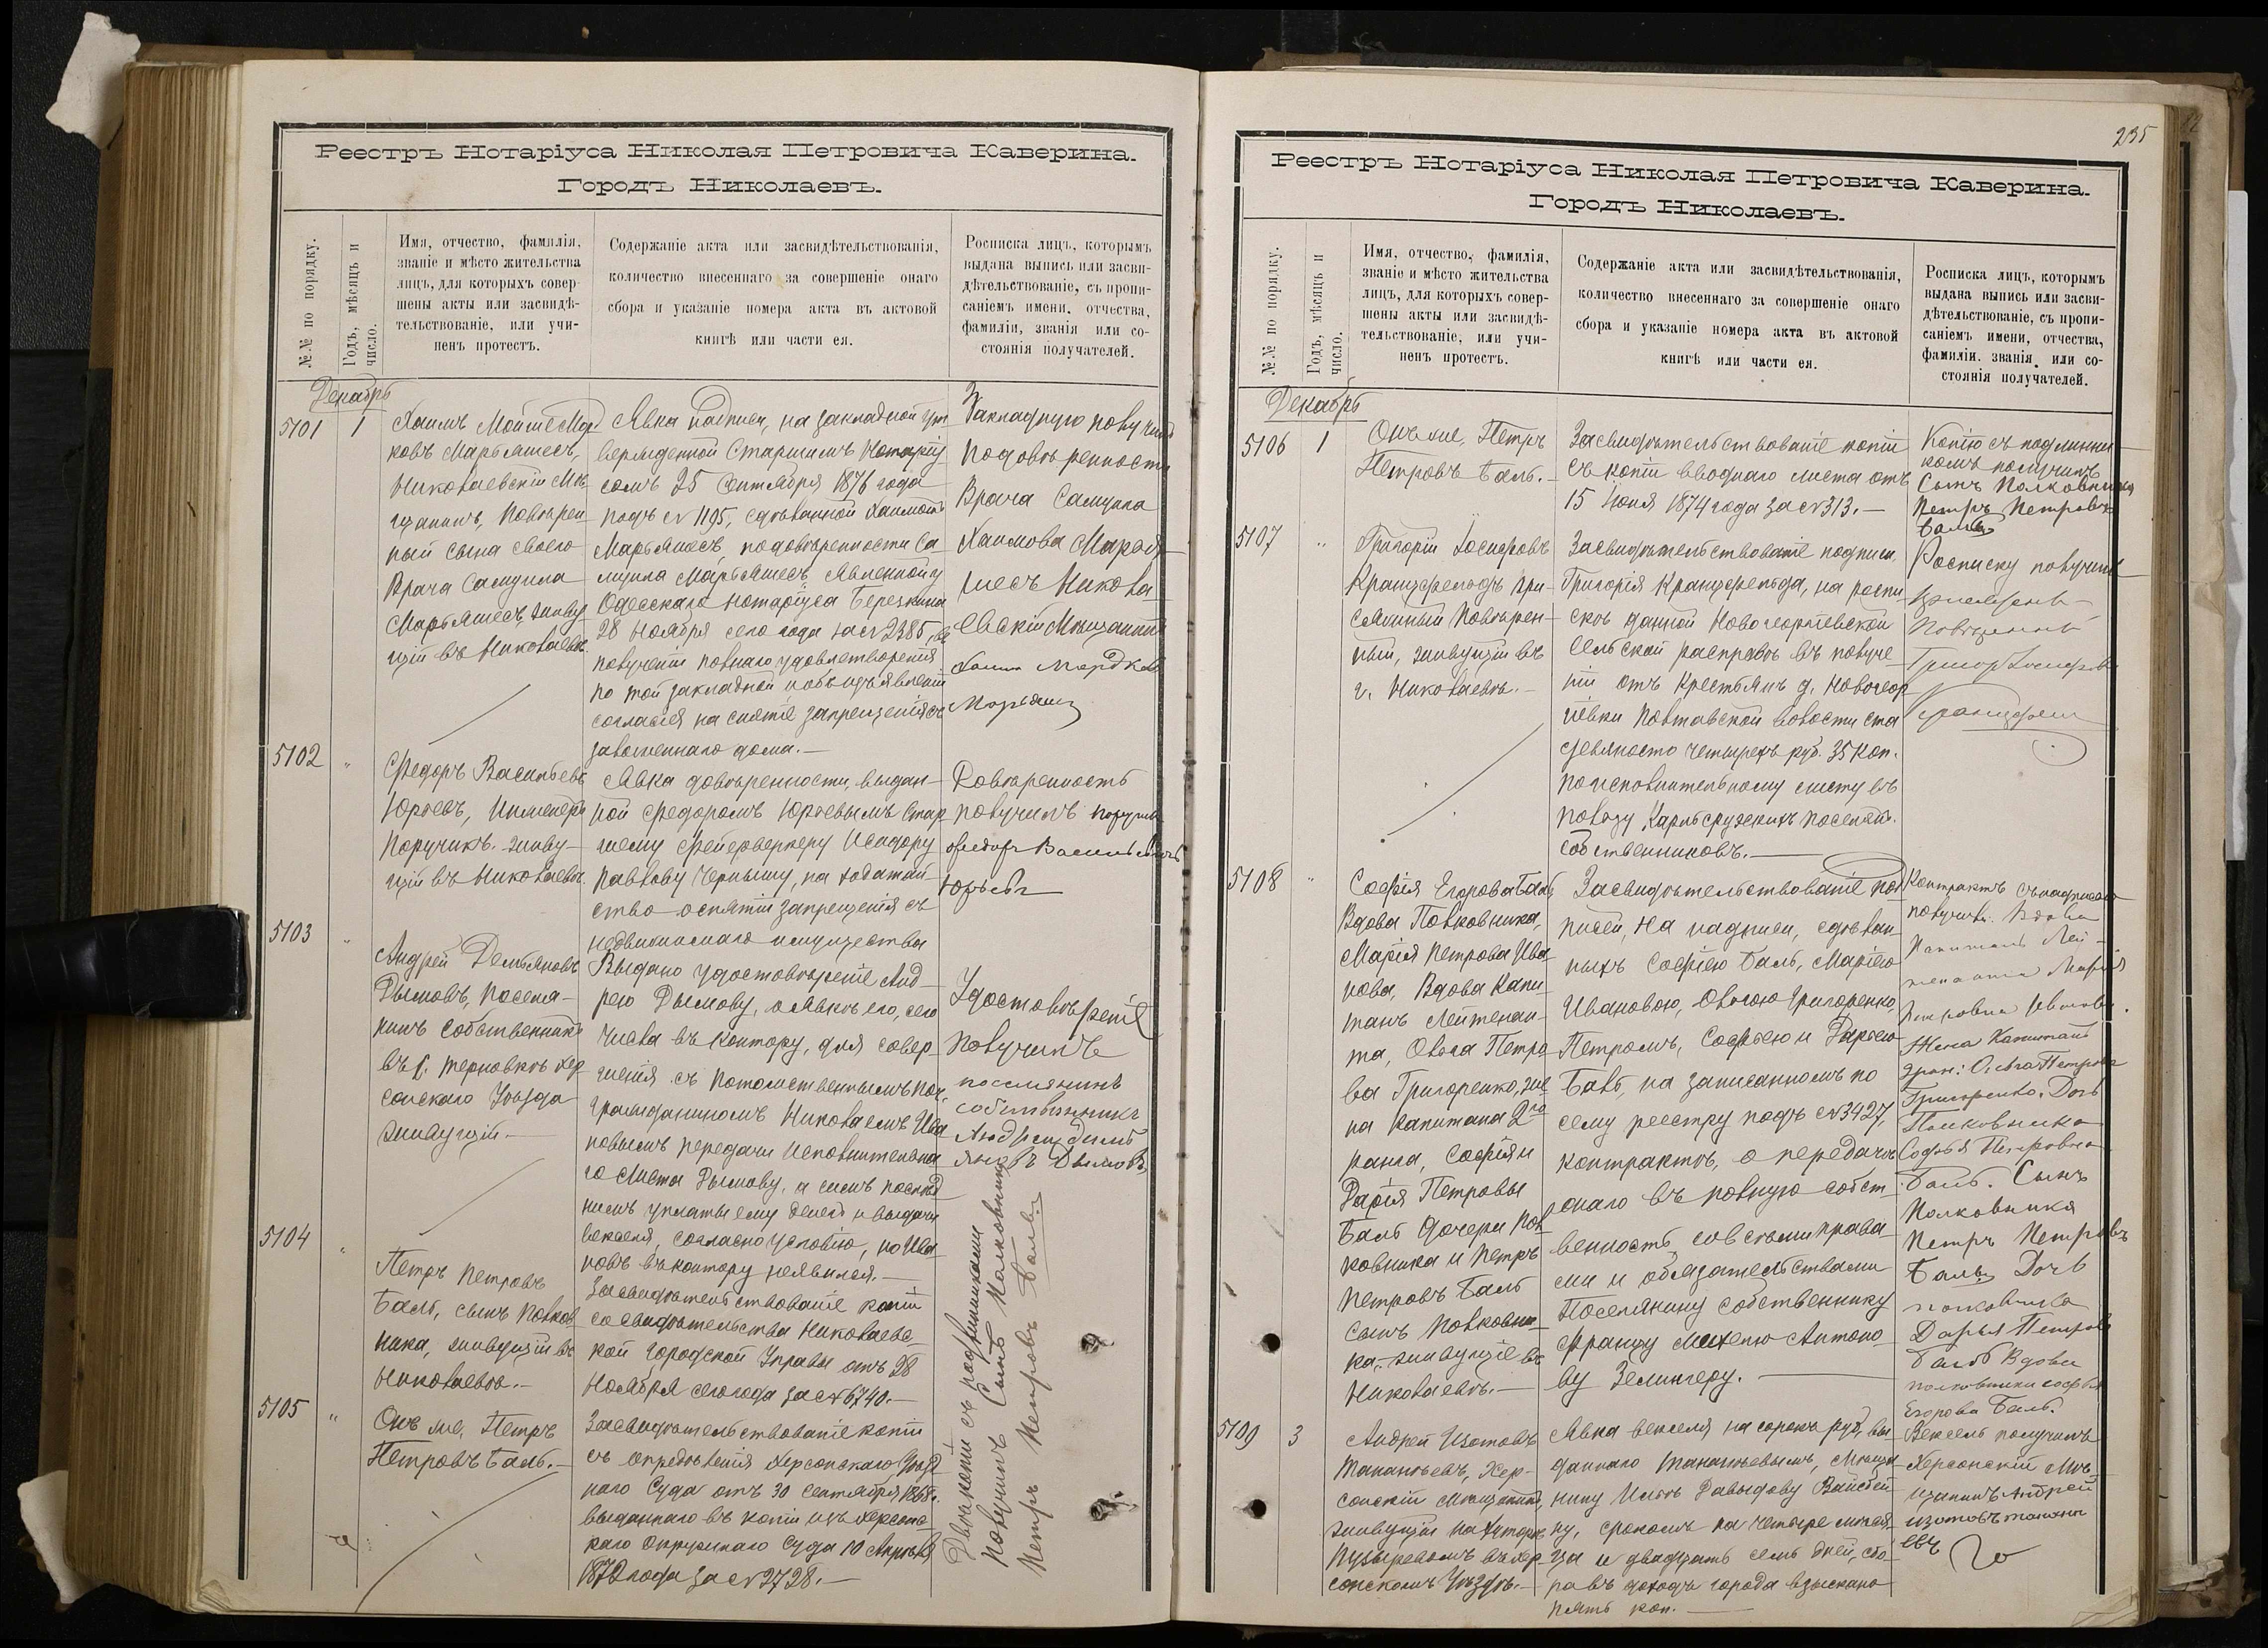 Реестръ Нотаріуса Николая Петровича Каверина.
Городъ Николаевъ.
№№ по порядку.
Годъ, мѣсяцъ и
число.
Имя, отчество, фамилія,
званіе и мѣсто жительства
лицъ, для которыхъ совер-
шены акты или засвидѣ-
тельствованіе, или учи-
ненъ протестъ.
Содержаніе акта или засвидѣтельствованія,
количество внесеннаго за совершеніе онаго
сбора и указаніе номера акта въ актовой
книгѣ или части ея.
Росписка лицъ, которымъ
выдана выпись или засви-
дѣтельствованіе, съ пропи-
саніемъ имени, отчества,
фамиліи, званія или со-
стоянія получателей.
Декабрь
5101
1
Хаимъ Мойше Мор
ковъ Марьяшесъ,
Николаевскій Мѣ
щанинъ, повѣрен
ный сына своего
Врача Самуила
Марьяшесъ, живу
щій въ Николаевѣ.
Явка надписи, на закладной ут
вержденной Старшимъ Нотаріу
сомъ 25 Сентября 1876 года
подъ № 1195, сдѣланной Хаимомъ
Марьяшесъ, по довѣренности Са
муила Марьяшесъ, явленной у
Одесскаго Нотаріуса Березкина
28 Ноября сего года за № 2385, въ
полученіи полнаго удовлетворенія
по той закладной и объ изъявленіи
согласія на снятіе запрещенія съ
заложеннаго дома.—
Закладную получилъ
по довѣренности
Врача Самуила
Хаимова Марья
шесъ Никола
евскій Мѣщанинъ
Хаимъ Мордков
Марьяшес
5102
"
Федоръ Васильевъ
Юрьевъ, Инженеръ
Поручикъ, живу
щій въ Николаевѣ.
Явка довѣренности, выдан-
ной Федоромъ Юрьевымъ Стар
шему фейерверкеру Исидору
Павлову Чернышу, на ходатай
ство о снятіи запрещенія съ
недвижимаго имущества
Довѣренность
получилъ поручикъ
Федоръ Васильевичъ
Юрьевъ
5103
"
Андрей Демьяновъ
Дымовъ, поселя-
нинъ собственникъ
въ с. Терновкѣ Хер
сонскаго Уѣзда
живущій.—
Выдано удостовѣреніе Анд-
рею Дымову, о явкѣ его, сего
числа въ контору, для совер-
шенія съ потомственнымъ поч.
гражданиномъ Николаемъ Ива
новымъ передачи исполнительна
го листа Дымову, а симъ послѣд
нимъ уплаты ему денегъ и выдачи
векселя, согласно условію, но Ива
новъ въ контору неявился.—
Удостовѣреніе
получилъ
поселянинъ
собственникъ
Андрей Демь
яновъ Дымовъ
5104
"
Петръ Петровъ
Баль, сынъ Полков
ника, живущій въ
Николаевѣ.—
Засвидѣтельствованіе копіи
со свидѣтельства Николаевс-
кой Городской Управы отъ 28
Ноября сего года за № 6740.—
5105
"
Онъ же, Петръ
Петровъ Баль.—
Засвидѣтельствованіе копіи
съ опредѣленія Херсонскаго Уѣзд
наго Суда отъ 30 Сентября 1868 г.
выданнаго въ копіи изъ Херсонс-
каго Окружнаго Суда 10 Апрѣля
1872 года за № 2728.—
Двѣ копіи съ подлинниками
получилъ Сынъ Полковника
Петръ Петровъ Баль.
235
Реестръ Нотаріуса Николая Петровича Каверина.
Городъ Николаевъ.
№№ по порядку.
Годъ, мѣсяцъ и
число.
Имя, отчество, фамилія,
званіе и мѣсто жительства
лицъ, для которыхъ совер-
шены акты или засвидѣ-
тельствованіе, или учи-
ненъ протестъ.
Содержаніе акта или засвидѣтельствованія,
количество внесеннаго за совершеніе онаго
сбора и указаніе номера акта въ актовой
книгѣ или части ея.
Росписка лицъ, которымъ
выдана выпись или засви-
дѣтельствованіе, съ пропи-
саніемъ имени, отчества,
фамиліи. званія или со-
стоянія получателей.
Декабрь
5106
1
Онъ же, Петръ
Петровъ Баль.—
Засвидѣтельствованіе копіи
съ копіи вводнаго листа отъ
15 Іюня 1874 года за № 313.—
Копію съ подлинни
комъ получилъ
Сынъ Полковника
Петръ Петровъ
Баль
5107
"
Григорій Іосифовъ
Кранцфельдъ При-
сяжный повѣрен-
ный, живущій въ
г. Николаевѣ.—
Засвидѣтельствованіе подписи
Григорія Кранцфельда, на роспи
скѣ данной Новогеоргіевской
сельской расправѣ въ получе-
ніи отъ крестьянъ д. Новогеор
гіевки Полтавской волости ста
девяносто четырехъ руб. 35 коп.
по исполнительному листу въ
пользу Карлсрузскихъ поселянъ
собственниковъ.—
Росписку получилъ
Присяжный
Повѣренный
Григор Іосифов
Кранцфельд
5108
"
Софія Егорова Баль
Вдова Полковника,
Марія Петрова Ива
нова, Вдова Капи-
танъ Лейтенан-
та, Ольга Петро
ва Григоренко, же
на Капитана 2го
ранга, Софія и
Дарія Петровы
Баль дочери Пол
ковника и Петръ
Петровъ Баль
сынъ Полковни-
ка, живущіе въ
Николаевѣ.—
Засвидѣтельствованіе под
писей, на надписи, сдѣлан-
ныхъ Софіею Баль, Маріею
Ивановою, Ольгою Григоренко,
Петромъ, Софіею и Дарьею
Баль, на записанномъ по
сему реестру подъ № 3427,
контрактѣ, о передачѣ
онаго въ полную собст-
венность со всѣми права
ми и обязательствами
Поселянину собственнику
Францу Михелю Антоно-
ву Зелингеру.—
Контрактъ съ надписью
получили: Вдова
Капитанъ Лей-
тенанта Марія
Петровна Иванова.
Жена Капитанъ
Ольга Петрова
Григоренко. Дочь
Полковника
Софья Петровна
Баль. Сынъ
Полковника
Петръ Петровъ
Баль Дочь
полковника
Дарья Петрова
Баль Вдова
полковника Софья
Егорова Баль.
5109
3
Андрей Изотовъ
Танантьевъ, Хер-
сонскій Мѣщанинъ,
живущій на хуторѣ
Пузыревомъ въ Хер
сонскомъ Уѣздѣ.—
Явка векселя на сорокъ руб, вы-
даннаго Танантьевымъ, Мѣща
нину Давыдову Вайсбей
ну, срокомъ на четыре мѣся-
ца и двадцать семь дней, сбо-
ра въ доходъ города взыскано
пять коп.—
Вексель получилъ
Херсонскій Мѣ-
щанинъ Андрей
Изотовъ Танант
евъ